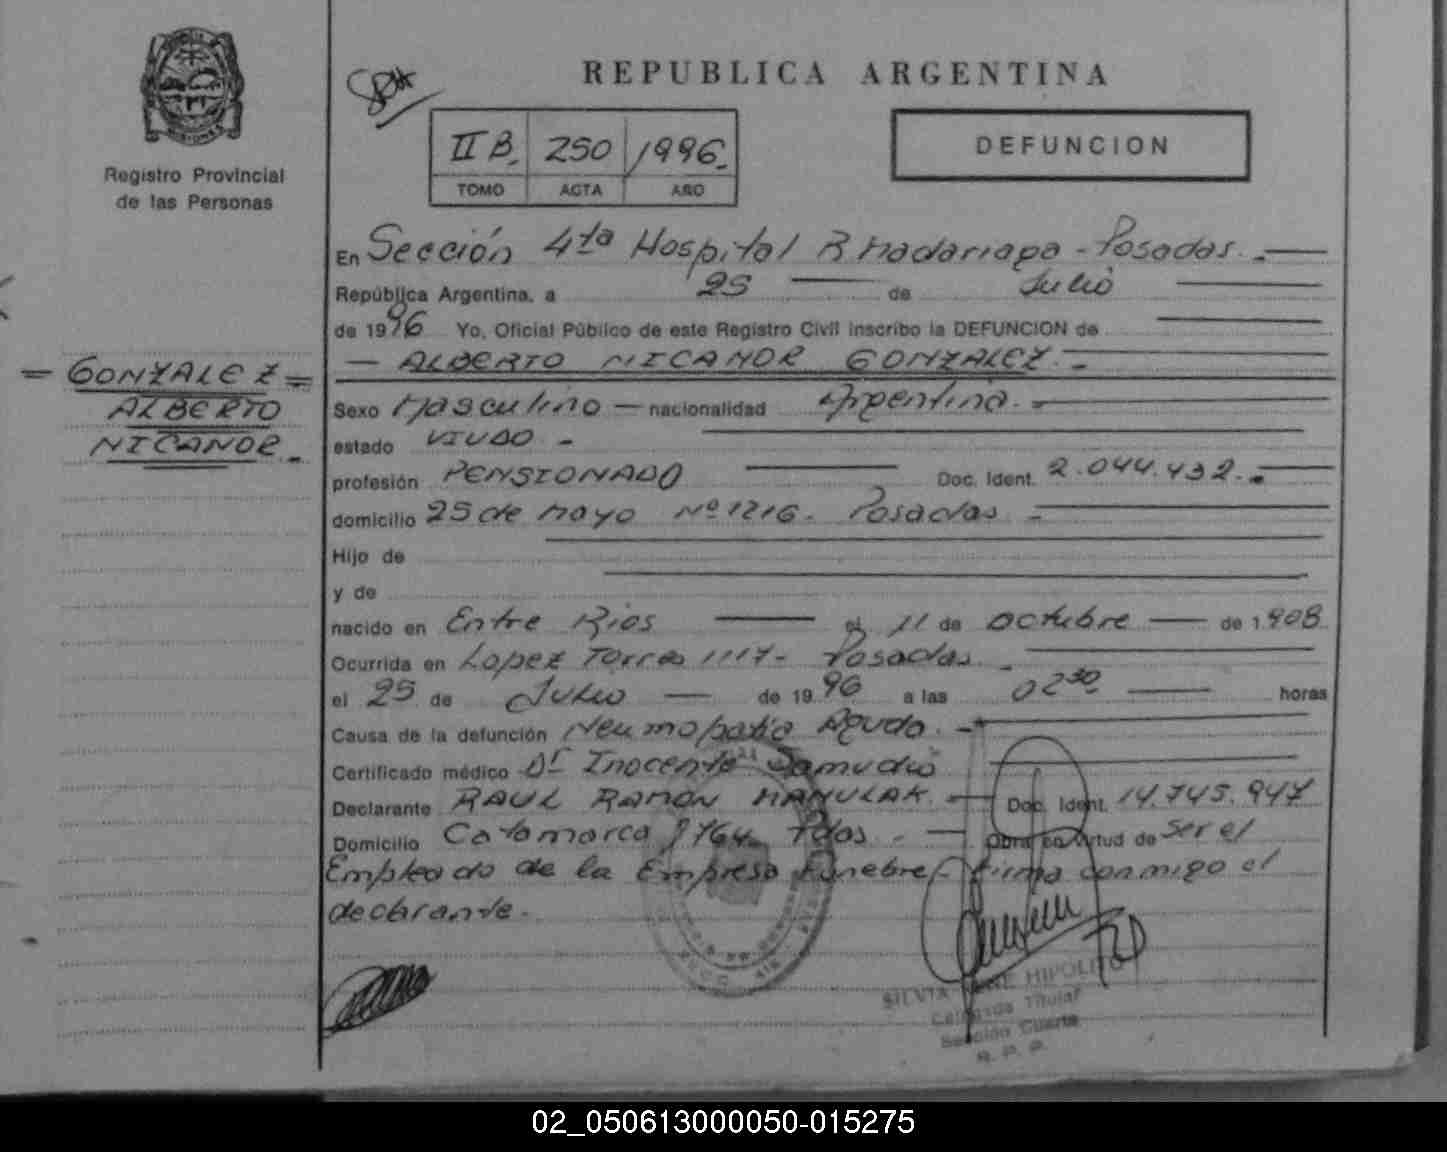 REPUBLICA ARGENTINA
MISIONES
Registro Provincial
de las Personas
II B. 250 1996.
TOMO ACTA AÑO
DEFUNCION
En Sección 4ta Hospital R Madariaga - Posadas. -
República Argentina, a 25 de Julio
de 1996 Yo, Oficial Público de este Registro Civil inscribo la DEFUNCION de
- ALBERTO NICANOR GONZALEZ. -
= GONZALEZ =
ALBERTO
NICANOR. -
Sexo Masculino - nacionalidad Argentina. -
estado VIUDO -
profesión PENSIONADO Doc. Ident. 2.044.432. -
domicilio 25 de Mayo Nº 1216 - Posadas -
Hijo de
y de
nacido en Entre Rios el 11 de Octubre de 1.908
Ocurrida en Lopez Torres 1117 - Posadas -
el 25 de Julio de 1996 a las 02 30 horas
Causa de la defunción Neumopatia Aguda. -
Certificado médico Dr Inocente Samudio
Declarante RAUL RAMON HANULAK - Doc. Ident. 14.745.947
Domicilio Catamarca Pdas. - Obra en virtud de Ser el
Empleado de la Empresa Funebre - firma conmigo el
declarante.
SILVIA HIPOLITO
Delegada Titular
Sección Cuarta
R. P. P.
02_050613000050-015275